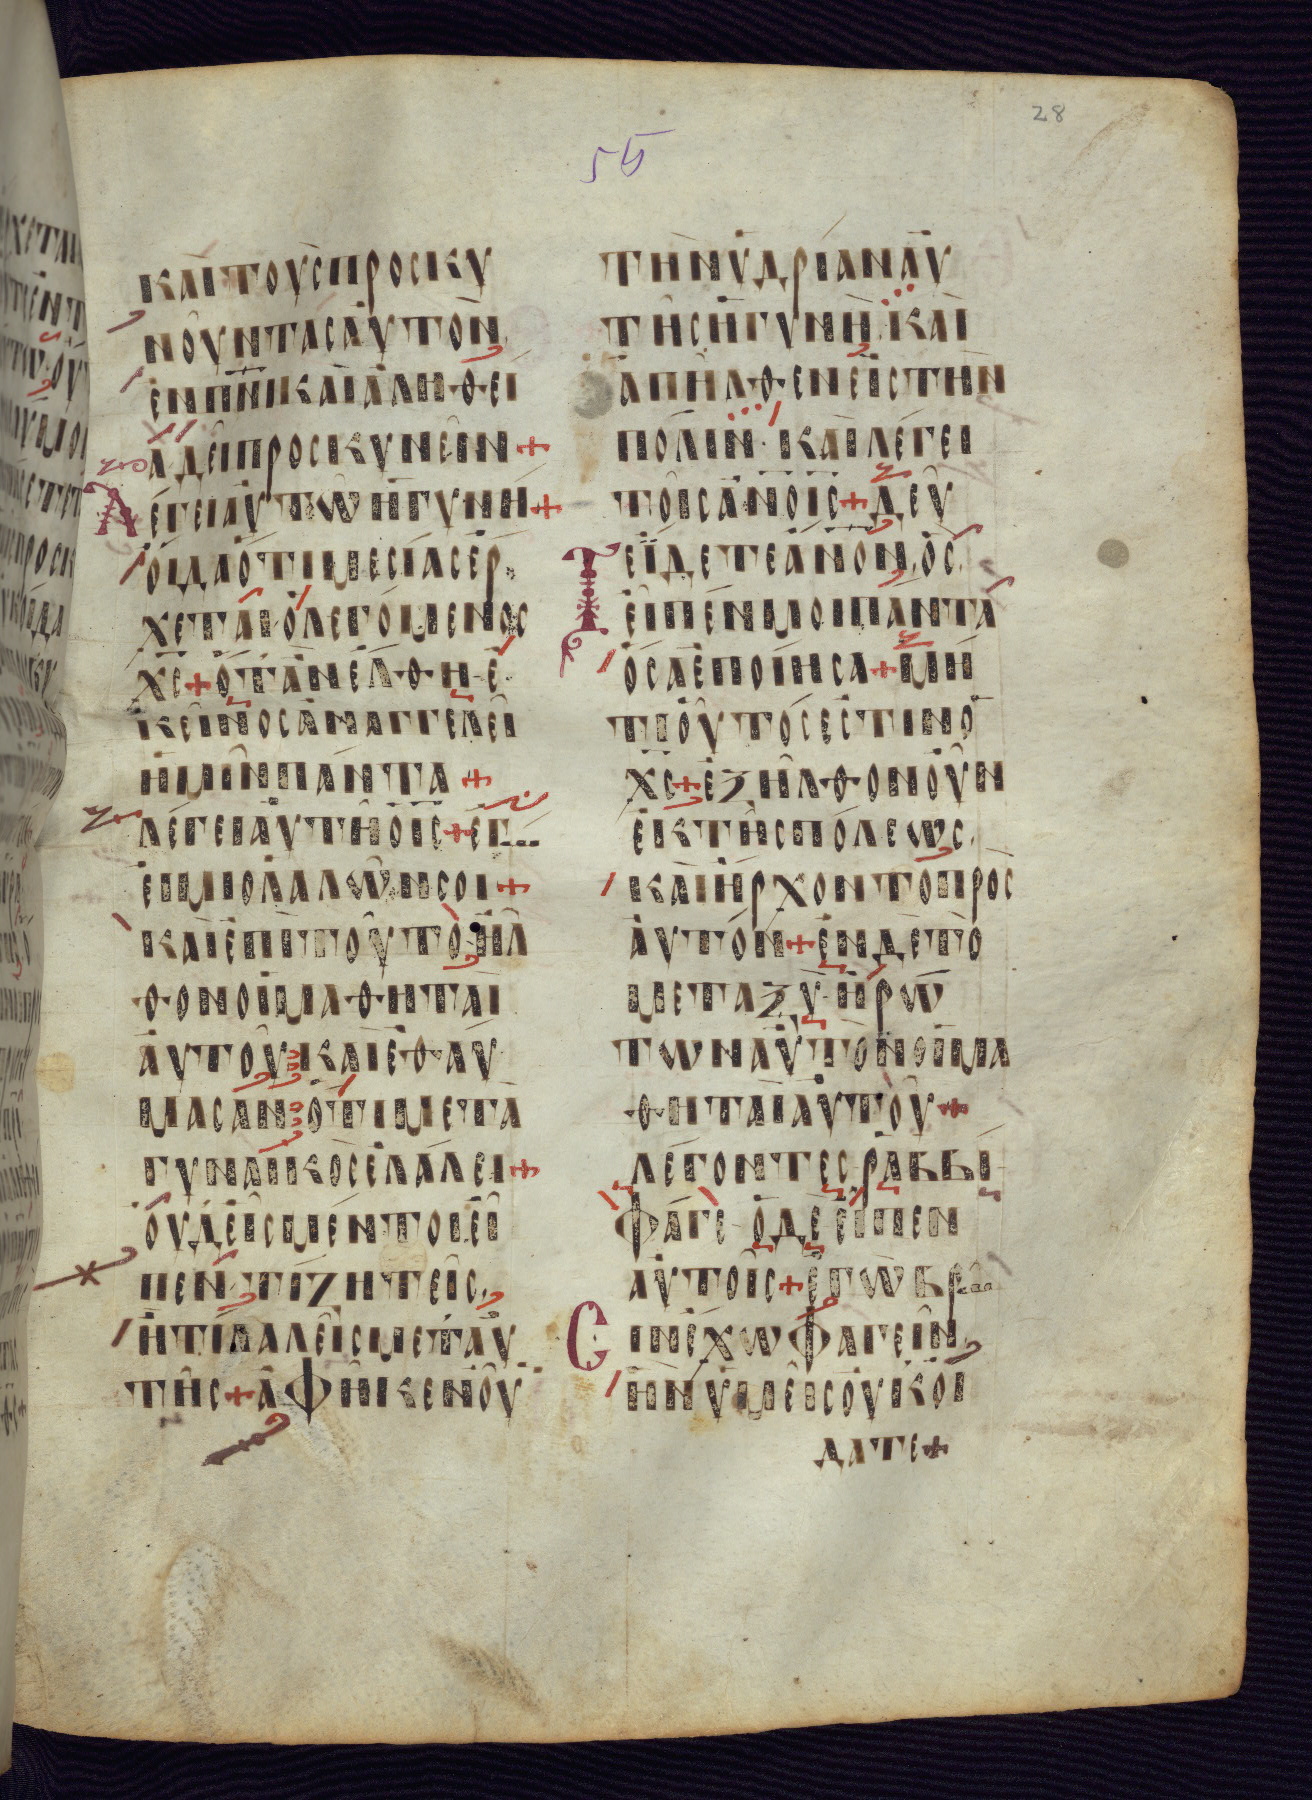 28
55
ΚΑΙΤΟΥΣΠΡΟΣΚΥ
ΝΟΥΝΤΑΣΑΥΤΟΝ
ΕΝΠΝΙΚΑΙΑΛΗΘΕΙ
ΑΔΕΙΠΡΟΣΚΥΝΕΙΝ+
ΛΕΓΕΙΑΥΤΩΗΓΥΝΗ+
ΟΙΔΑΟΤΙΜΕΣΙΑΣΕΡ
ΧΕΤΑΙΟΛΕΓΟΜΕΝΟΣ
ΧΣ+ΟΤΑΝΕΛΘΗΕ
ΚΕΙΝΟΣΑΝΑΓΓΕΛΕΙ
ΗΜΙΝΠΑΝΤΑ+
ΛΕΓΕΙΑΥΤΗΟΙΣ+ΕΓ
ΕΙΜΙΟΛΑΛΩΝΣΟΙ+
ΚΑΙΕΠΙΤΟΥΤΟΗΛ
ΘΟΝΟΙΜΑΘΗΤΑΙ
ΑΥΤΟΥΚΑΙΕΘΑΥ
ΜΑΣΑΝΟΤΙΜΕΤΑ
ΓΥΝΑΙΚΟΣΕΛΑΛΕΙ+
ΟΥΔΕΙΣΜΕΝΤΟΙΕΙ
ΠΕΝΤΙΖΗΤΕΙΣ,
ΗΤΙΛΑΛΕΙΣΜΕΤΑΥ
ΤΗΣ+ΑΦΗΚΕΝΟΥ
ΤΗΝΥΔΡΙΑΝΑΥ
ΤΗΣΗΓΥΝΗΚΑΙ
ΑΠΗΛΘΕΝΕΙΣΤΗΝ
ΠΟΛΙΝ·ΚΑΙΛΕΓΕΙ
ΤΟΙΣΑΝΟΙΣ+ΔΕΥ
ΤΕΙΔΕΤΕΑΝΟΝ,ΟΣ
ΕΙΠΕΝΜΟΙΠΑΝΤΑ
ΟΣΑΕΠΟΙΗΣΑ+ΜΗ
ΤΙΟΥΤΟΣΕΣΤΙΝΟ
ΧΣ+ΕΞΗΛΘΟΝΟΥΝ
ΕΚΤΗΣΠΟΛΕΩΣ,
ΚΑΙΗΡΧΟΝΤΟΠΡΟΣ
ΑΥΤΟΝ+ΕΝΔΕΤΟ
ΜΕΤΑΞΥΗΡΩ
ΤΩΝΑΥΤΟΝΟΙΜΑ
ΘΗΤΑΙΑΥΤΟΥ+
ΛΕΓΟΝΤΕΣ,ΡΑΒΒΙ
ΦΑΓΕ·ΟΔΕΕΙΠΕΝ
ΑΥΤΟΙΣ+ΕΓΩΒΡ
ΣΙΝΕΧΩΦΑΓΕΙΝ,
ΗΝΥΜΕΙΣΟΥΚΟΙ
ΔΑΤΕ+